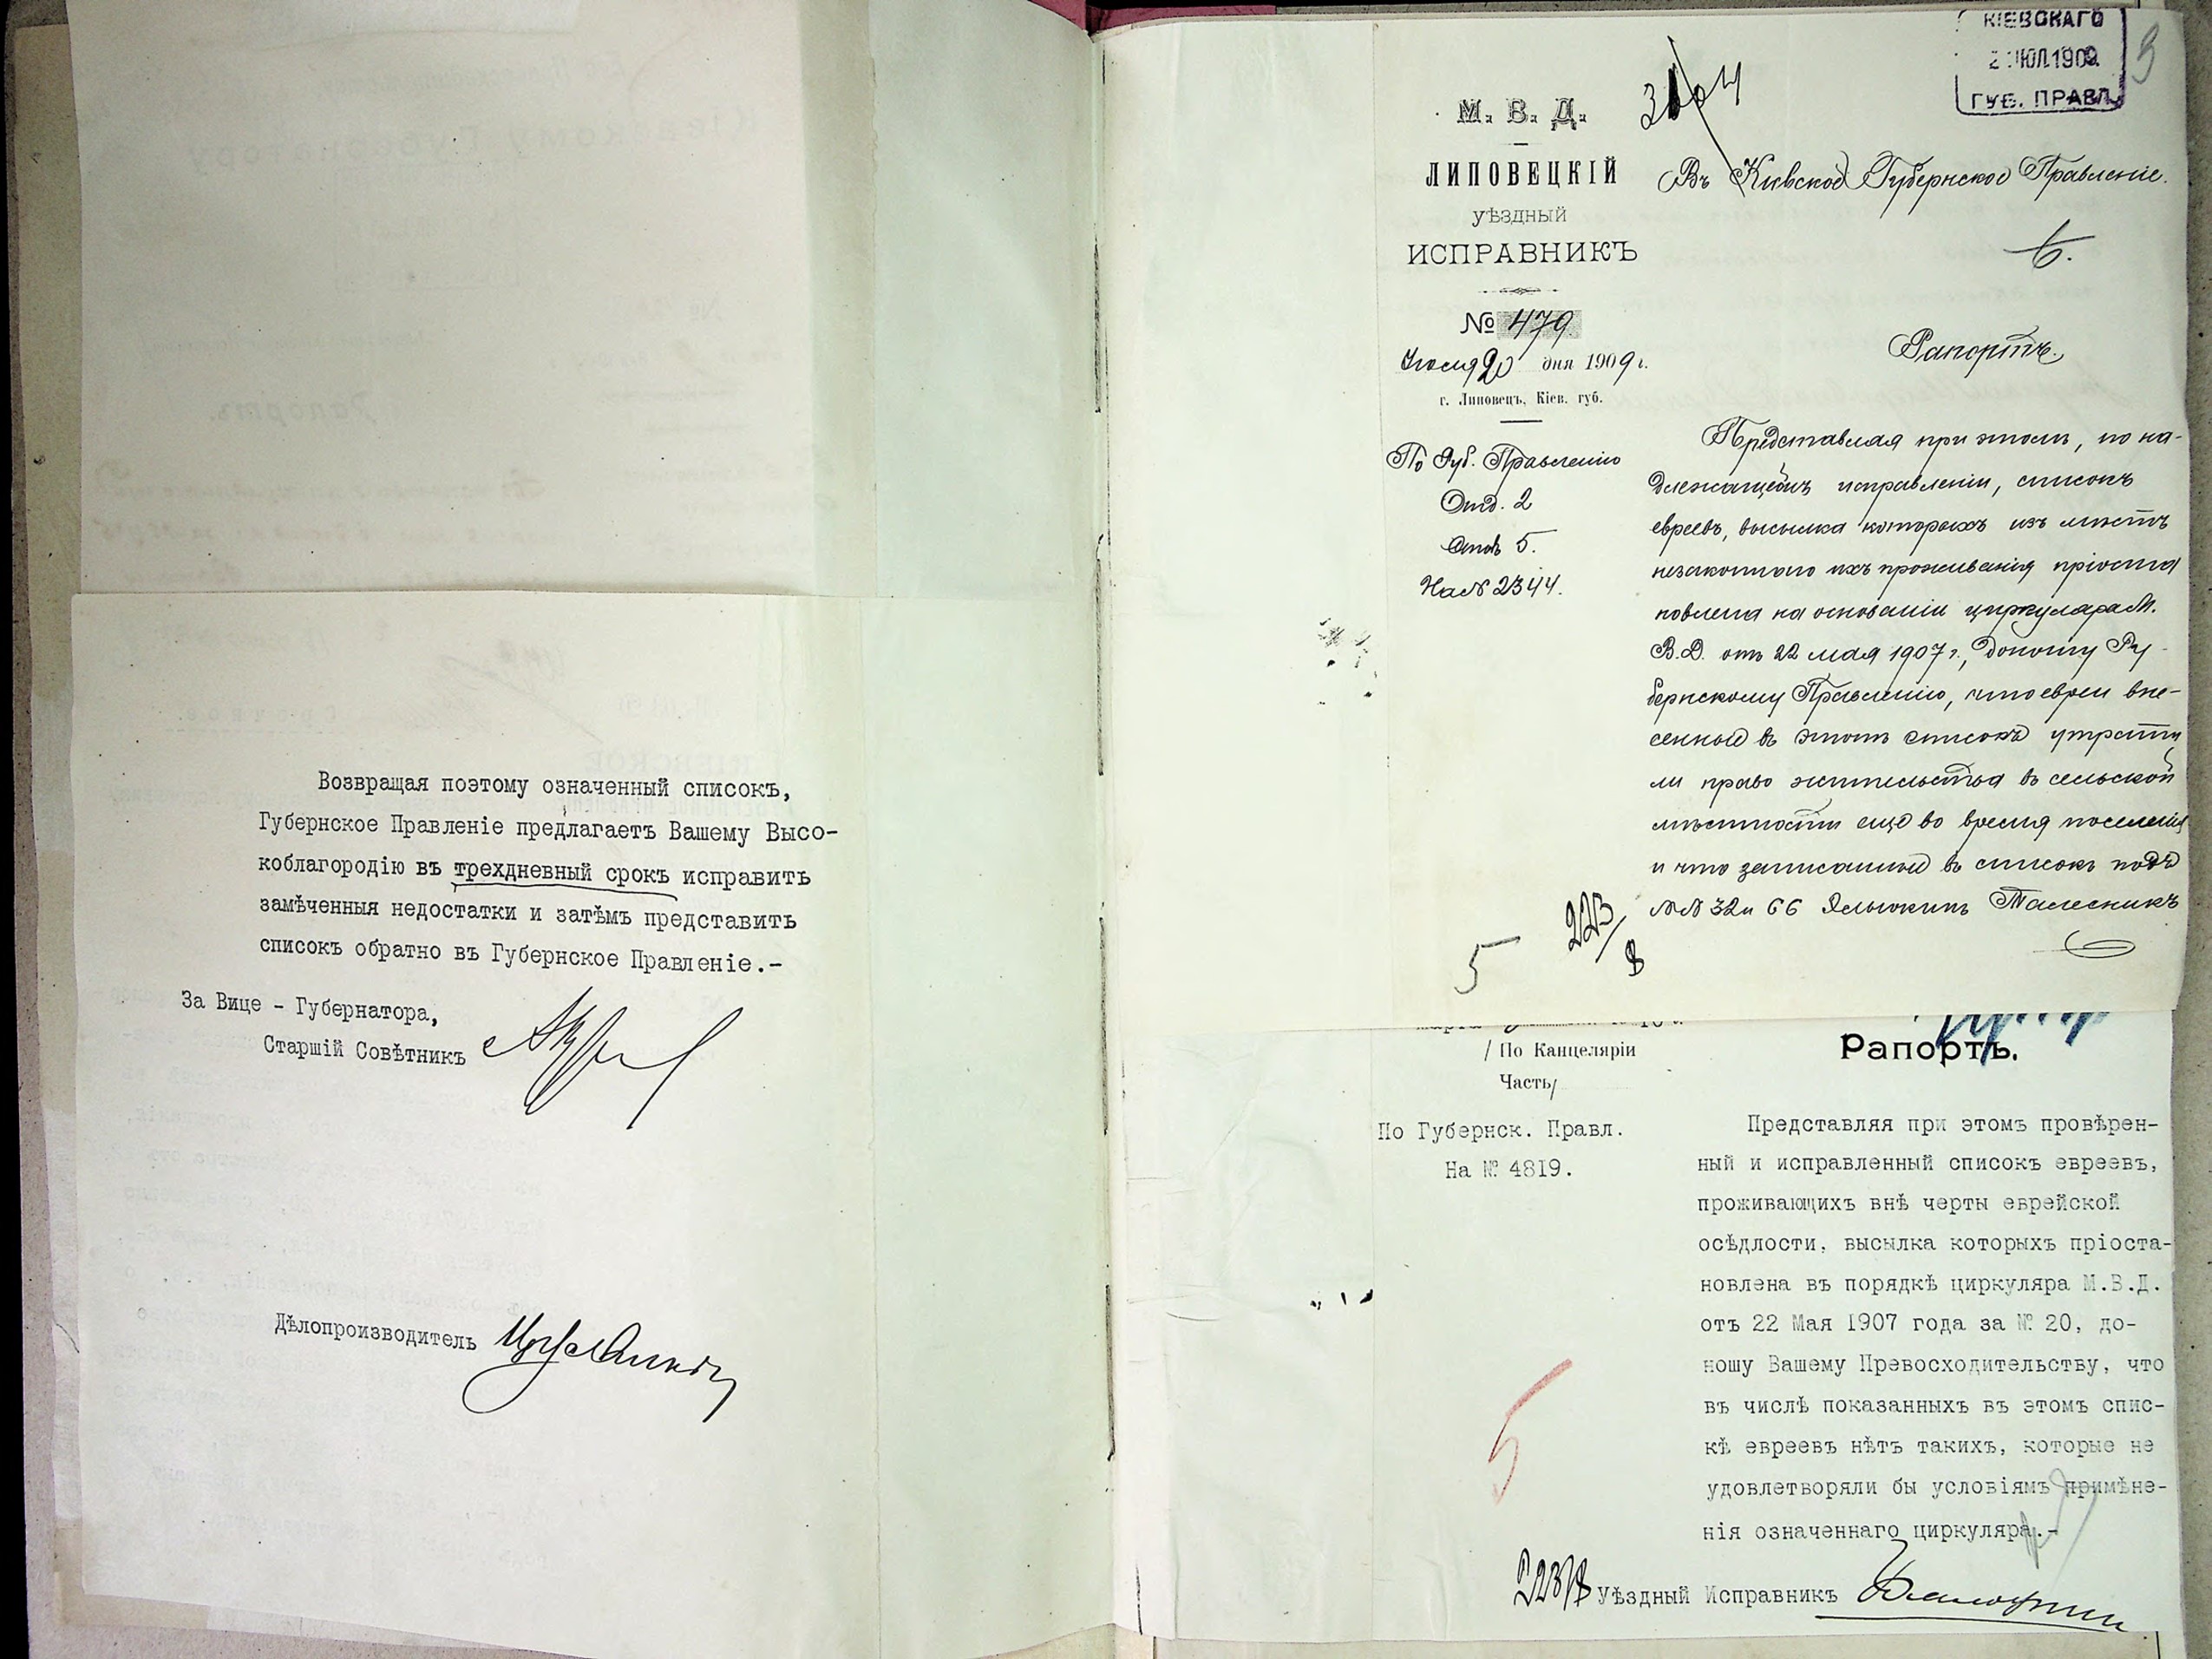 Возвращая поэтому означенный списокъ,
Губернское Правленіе предлагаетъ Вашему Высо-
коблагородію въ трехдневный срокъ исправить
замѣченныя недостатки и затѣмъ представить
списокъ обратно въ Губернское Правленіе.-
За Вице - Губернатора,
Старшій Совѣтникъ
Дѣлопроизводитель
КІЕВСКАГО
ІЮЛ.1909
ГУБ. ПРАВЛ.
М. В. Д.
ЛИПОВЕЦКІЙ
уѣздный
ИСПРАВНИКЪ
№ 479
Іюля 20 дня 1909 г.
г. Липовецъ, Кіев. губ.
По Губ. Правленію
Отд. 2
Столъ 5.
На № 2344.
Въ Кіевское Губернское Правленіе.
Рапортъ.
Представляя при этомъ, по на-
длежащемъ исправленіи, списокъ
евреевъ, высылка которыхъ изъ мѣстъ
незаконнаго ихъ проживанія пріоста
новлена на основаніи циркуляра М.
В. Д. отъ 22 мая 1907 г., доношу Гу-
бернскому Правленію, что евреи вне-
сенные въ этотъ списокъ утрати
ли право жительства въ сельской
мѣстности еще во время поселенія
и что записанные въ списокъ подъ
№№ 32 и 66 Талесникъ
223/8
5
/ По Канцеляріи
Часть/
По Губернск. Правл.
На № 4819.
Рапортъ.
Представляя при этомъ провѣрен-
ный и исправленный списокъ евреевъ,
проживающихъ внѣ черты еврейской
осѣдлости, высылка которыхъ пріоста-
новлена въ порядкѣ циркуляра М.В.Д.
отъ 22 Мая 1907 года за № 20, до-
ношу Вашему Превосходительству, что
въ числѣ показанныхъ въ этомъ спис-
кѣ евреевъ нѣтъ такихъ, которые не
удовлетворяли бы условіямъ примѣне-
нія означеннаго циркуляра.-
5
223/8 Уѣздный Исправникъ